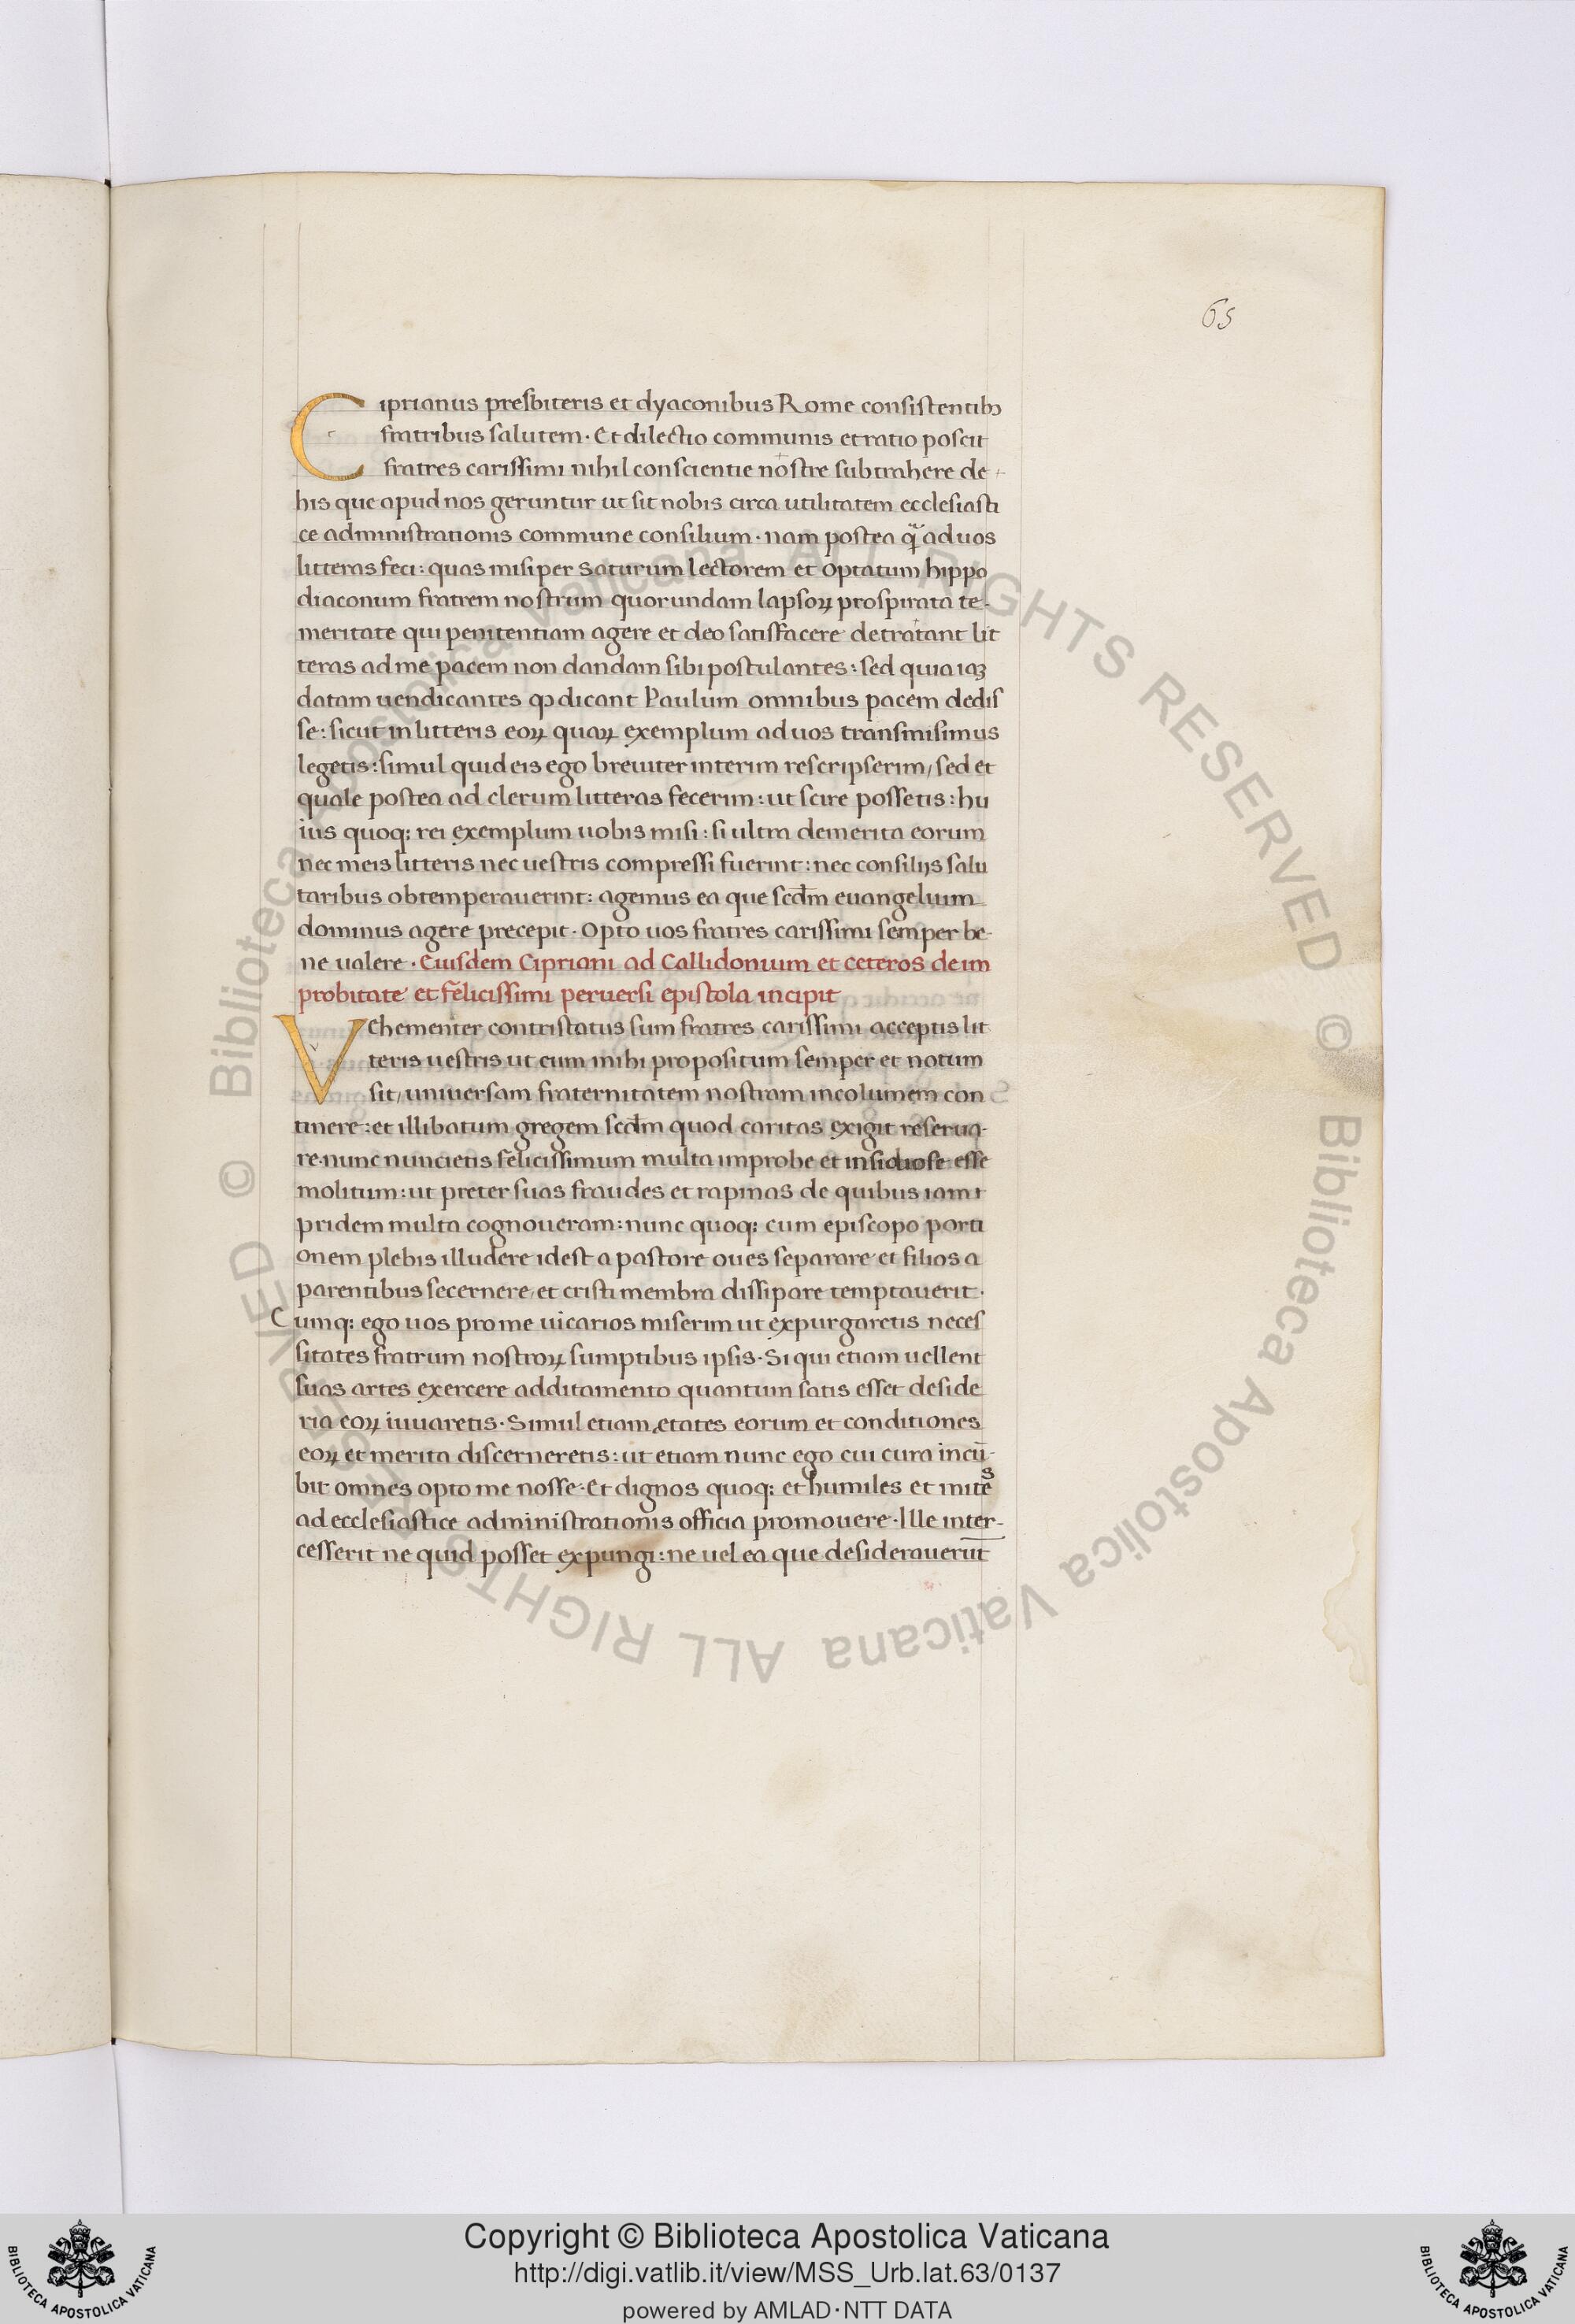 65
Ciprianus presbiteris et dyaconibus Rome consistentibꝫ
fratribus salutem · Et dilectio communis et ratio poscit
fratres carissimi nihil conscientie nostre subtrahere de
his que apud nos geruntur ut sit nobis circa utilitatem ecclesiasti
ce administrationis commune consilium · nam postea qͣ̃ ad uos
litteras feci : quas misi per saturum lectorem et optatum hippo
diaconum fratrem nostrum quorundam lapsoꝝ prospirata te-
meritate qui penitentiam agere et deo satisfacere detratant lit
teras ad me pacem non dandam sibi postulantes : sed quia iaꝫ
datam uendicantes ꝙ dicant Paulum omnibus pacem dedis
se : sicut in litteris eoꝝ quaꝝ exemplum ad uos transmisimus
legetis : simul quid eis ego breuiter interim rescripserim / sed et
quale postea ad clerum litteras fecerim : ut scire possetis : hu
ius quoq; rei exemplum uobis misi : si ultra demerita eorum
nec meis litteris nec uestris compressi fuerint : nec consilijs salu
taribus obtemperauerint : agemus ea que scd̃m euangelium
dominus agere precepit · Opto uos fratres carissimi semper be-
ne ualere · Eiusdem Cipriani ad Callidonium et ceteros de im
probitate et felicissimi peruersi epistola incipit
VEhementer contristatus sum fratres carissimi acceptis lit
teris uestris ut cum mihi propositum semper et notum
sit / uniuersam fraternitatem nostram incolumem con
tinere : et illibatum gregem scd̃m quod caritas exigit reserua-
re · nunc nuncietis felicissimum multa improbe et insidiose esse
molitum : ut preter suas fraudes et rapinas de quibus iam
pridem multa cognoueram : nunc quoq; cum episcopo porti
onem plebis illudere idest a pastore oues separare et filios a
parentibus secernere / et cristi membra dissipare temptauerit ·
Cumq; ego uos pro me uicarios miserim ut expurgaretis neces
sitates fratrum nostroꝝ sumptibus ipsis · Si qui etiam uellent
suas artes exercere additamento quantum satis esset deside
ria eoꝝ iuuaretis · Simul etiam ętates eorum et conditiones
eoꝝ et merita discerneretis : ut etiam nunc ego cui cura incũ-
bit omnes opto me nosse · Et dignos quoq; et humiles et mites
ad ecclesiastice administrationis officia promouere · Ille inter-
cesserit ne quid posset expungi : ne uel ea que desiderauerũt
© Biblioteca Apostolica Vaticana ALL RIGHTS RESERVED © Biblioteca Apostolica Vaticana ALL RIGHTS RESERVED
Copyright © Biblioteca Apostolica Vaticana
http://digi.vatlib.it/view/MSS_Urb.lat.63/0137
powered by AMLAD·NTT DATA
BIBLIOTECA APOSTOLICA VATICANA
BIBLIOTECA APOSTOLICA VATICANA